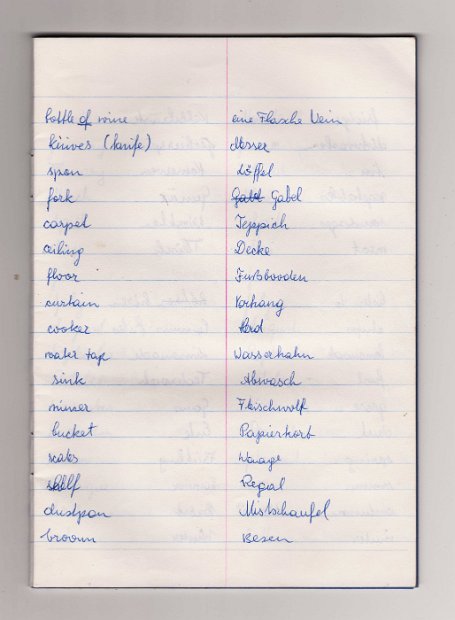 bottle of wine eine Flasche Wein
knives (knife) Messer
spoon Löffel
fork Gabel Gabel
carpet Teppich
ceiling Decke
floor Fußbooden
curtain Vorhang
cooker Herd
water tap Wasserhahn
sink Abwasch
mincer Fleischwolf
bucket Papierkorb
scales Waage
shelf Regal
dustpan Mistschaufel
broom Besen